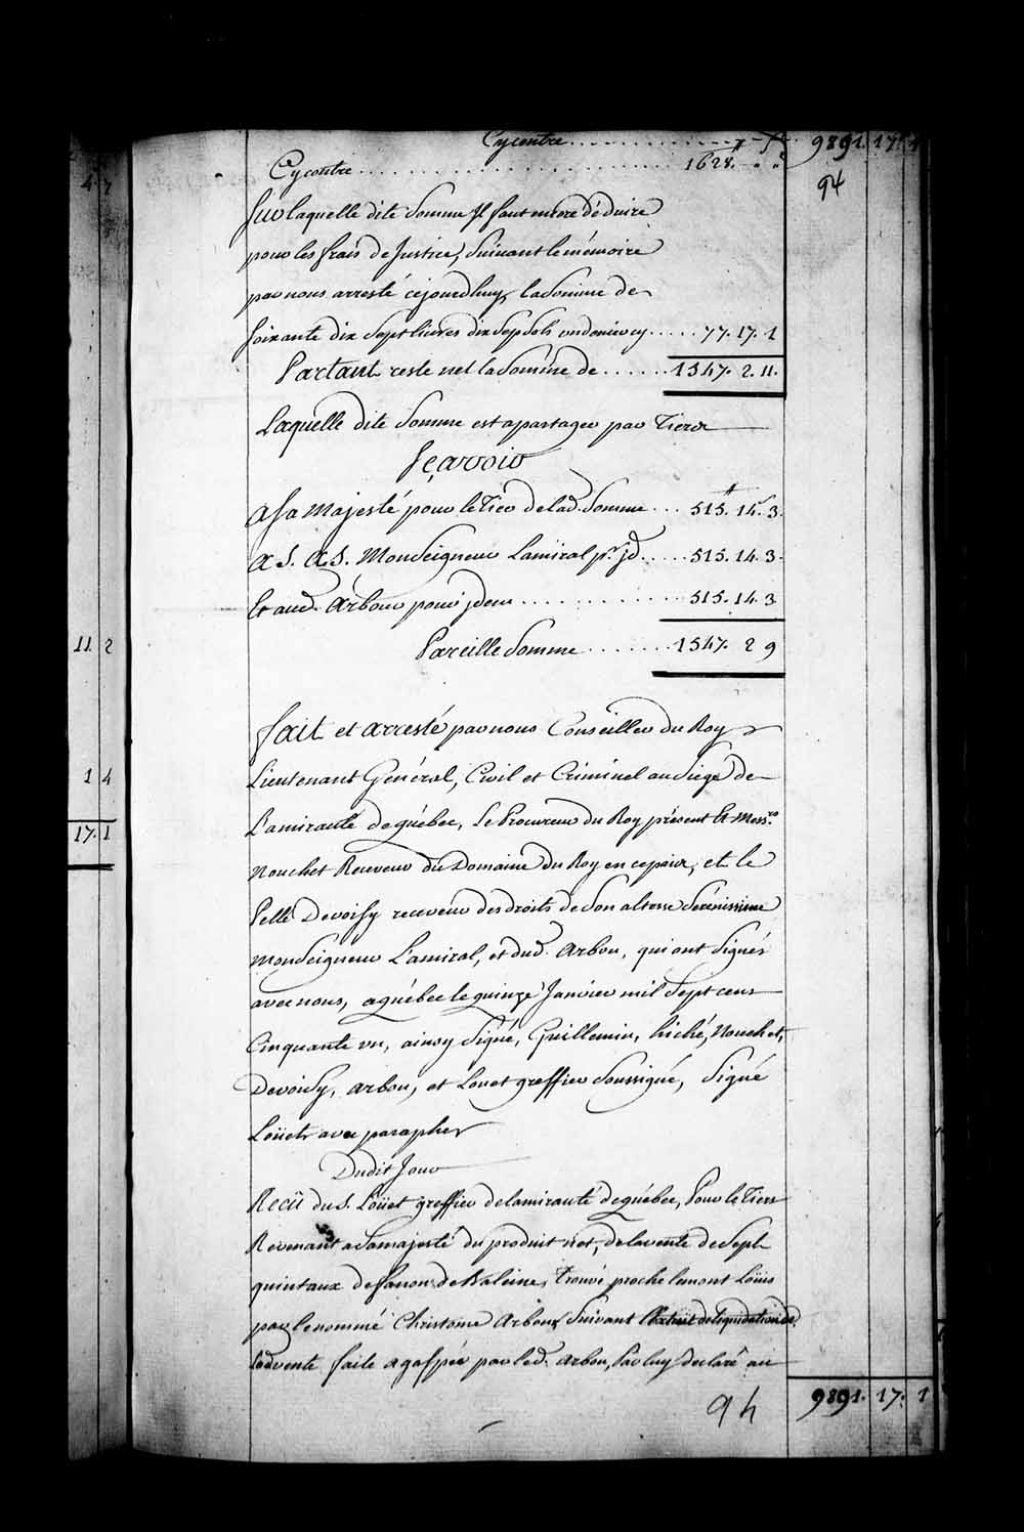 Cycontre . . . . . . . . . . 9891. 17. 1
Cycontre . . . . . . . . . . 1628. " "
94
4. 7
Sur laquelle dite Somme Jl faut encore déduire
pour les frais de Justice, Suivant le mémoire
par nous arresté cejourdhuy, la Somme de
Soixante dix Sept livres dix Sept Sols un denier cy . . . . . 77. 17. 1
Partant reste net la Somme de . . . . . . 1547. 2. 11.
Laquelle dite Somme est a partager par Tiers
Sçavoir
a Sa Majesté pour le Tier de lad. Somme . . . 515. 14. 3.
a S. A. S. Monseigneur Lamiral pr. jd . . . . . 515. 14. 3.
Et aud. Arbour pour jdem . . . . . . . . . . 515. 14. 3
11. 2
Pareille Somme . . . . . . . 1547. 2 9
fait et arresté par nous Conseiller du Roy
1 4
Lieutenant Général, Civil et Criminel au Siege de
17. 1
L'amirauté de québec, le Procureur du Roy présent Et Mess.rs
Nouchet Receveur du Domaine du Roy en ce païx, et le
Pellé Devoisy receveur des droits de Son altesse Sérénissime
monseigneur L'amiral, et dud. Arbou, qui ont Signés
avec nous, a québec le quinze Janvier mil Sept cens
Cinquante un, ainsy Signé, Guillemin, hiché, Nouchet,
Devoisy, arbou, et Louet greffier Soussigné, Signé
Loüet avec paraphe
Dudit Jour
Recü du S. Loüet greffier de lamirauté de québec, Pour le Tiers
Revenant a Sa majesté du produit net, de la vente de Sept
quintaux de fanon de Baleine, trouvé proche le mont Loüis
par le nommé Christome Arbour Suivant l'Extrait de liquidation de
Ladvente faite a gaspée par led. Arbou, par luy déclaré au
9891. 17. 1
94